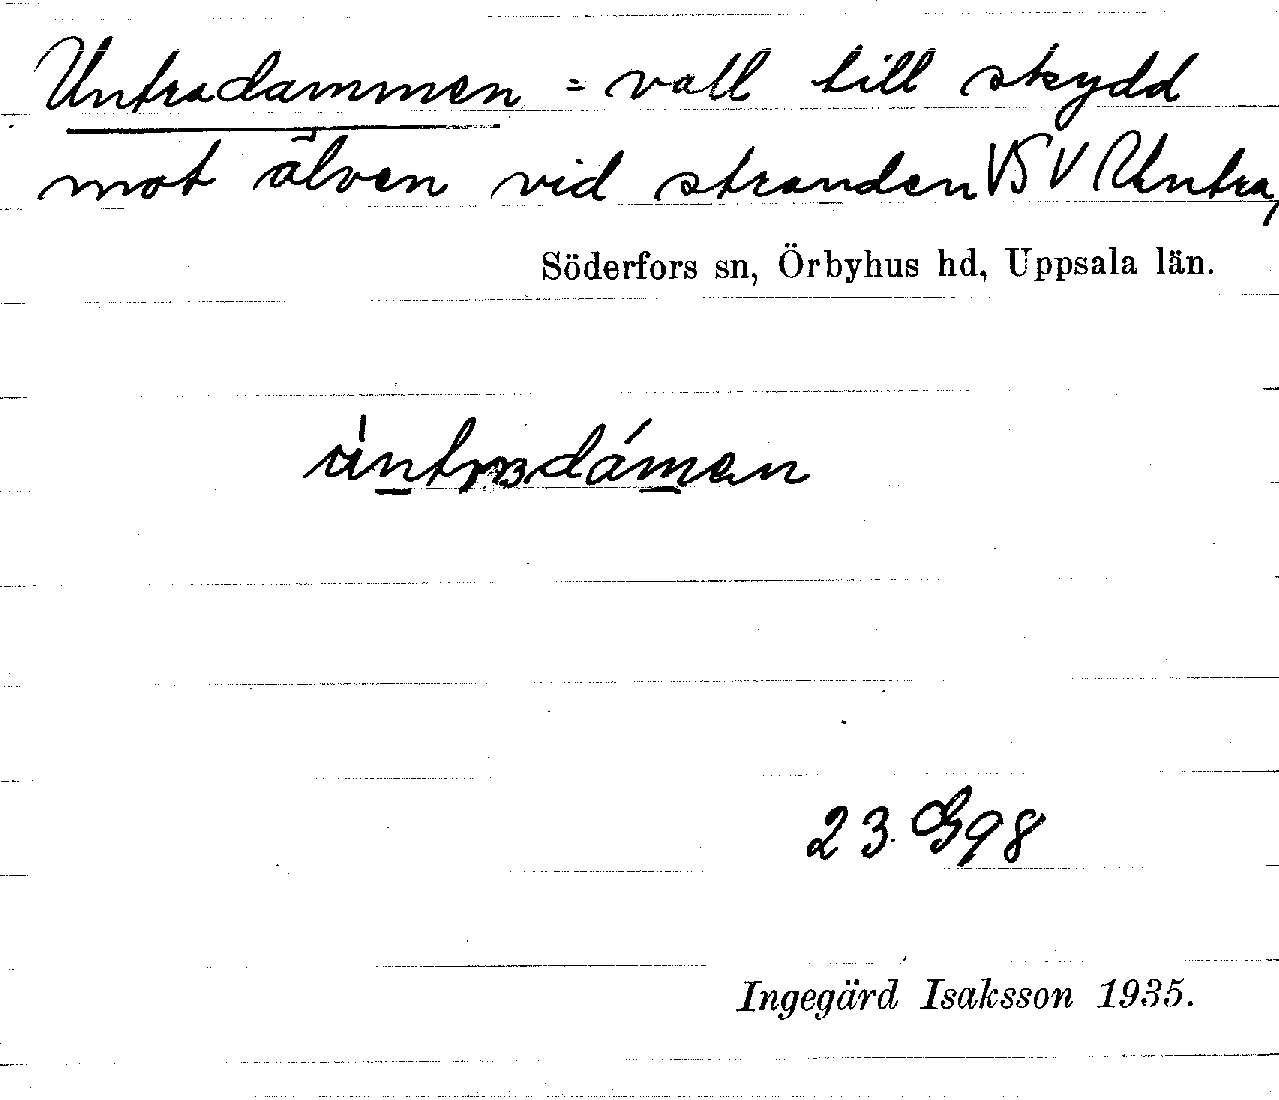 Untradammen = vall till skydd
mot älven vid stranden VSV Untra,
Söderfors sn, Örbyhus hd, Uppsala län.
23. G98
Ingegärd Isaksson 1935.